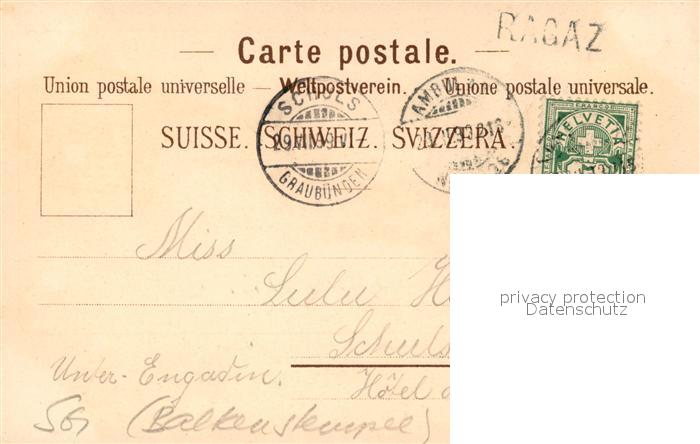 RAGAZ
Carte postale.
Union postale universelle — Weltpostverein. — Unione postale universale.
SUISSE. SCHWEIZ. SVIZZERA.
SCHULS
GRAUBÜNDEN
AMBUL
FRANCO
HELVETIA
Miss
Lulu H
Schuls
Unter-Engadin.
Hôtel
(Balkenstempel)
privacy protection
Datenschutz